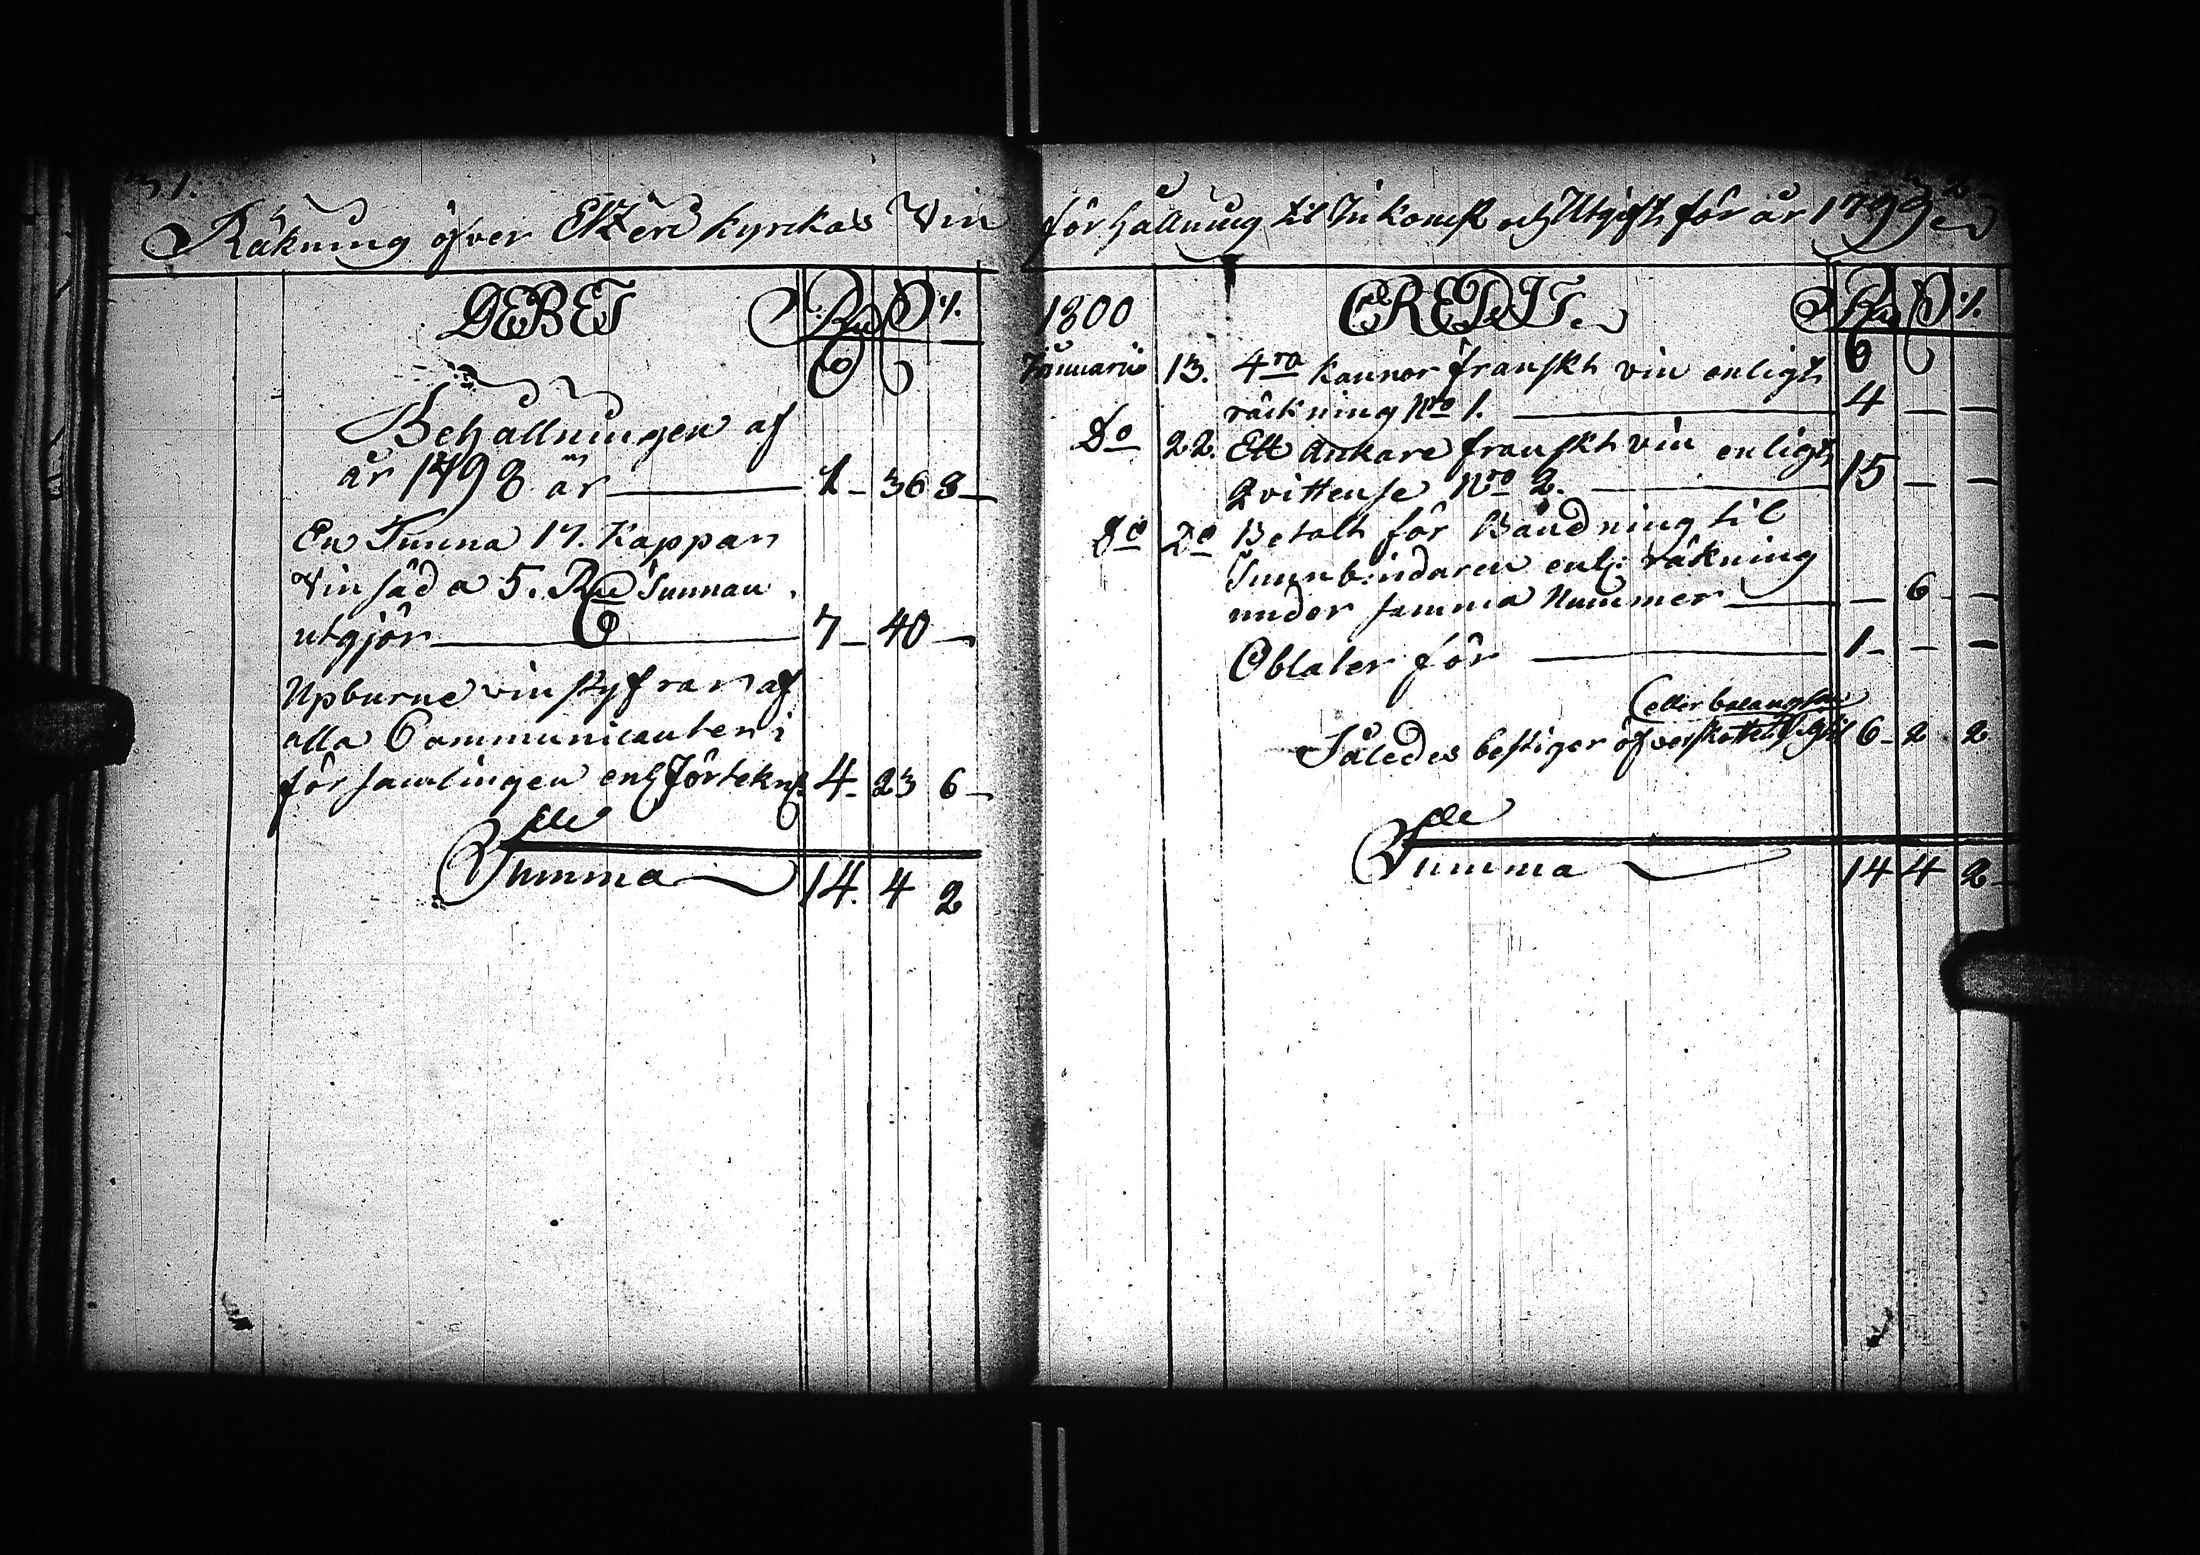 31.
Räkning öfver Ekzerd kyrckas Vin
DEBET
S: Rd S r.
Behållningen af
år 1798 är 1 36 8
En Tunna 17. Kappar
Vinsäd a 5. Rd Tunnan
utgjör 7 40
Upburne vin styfrar af
alla Communicanter i
församlingen enl förtekn: 4 23 6
Summa 14. 4 2
förhållning til Inkomst och Utgift för år 1799
1800 CREDIT. S Rd S r.
Januarii 13. 4ra kannor franskt vin enligt
räckning Nro 1. 4
Do 22. Ett Ankare franskt vin enligt
qvittense Nro 2. 15
Do Do Betalt för Bandning til
Tunnbindaren enl: räkning
under samma Nummer 6
Oblater för 1
(eller balangsen
Således bestiger öfverskottet sig til 6 2 2
Summa 14 4 2